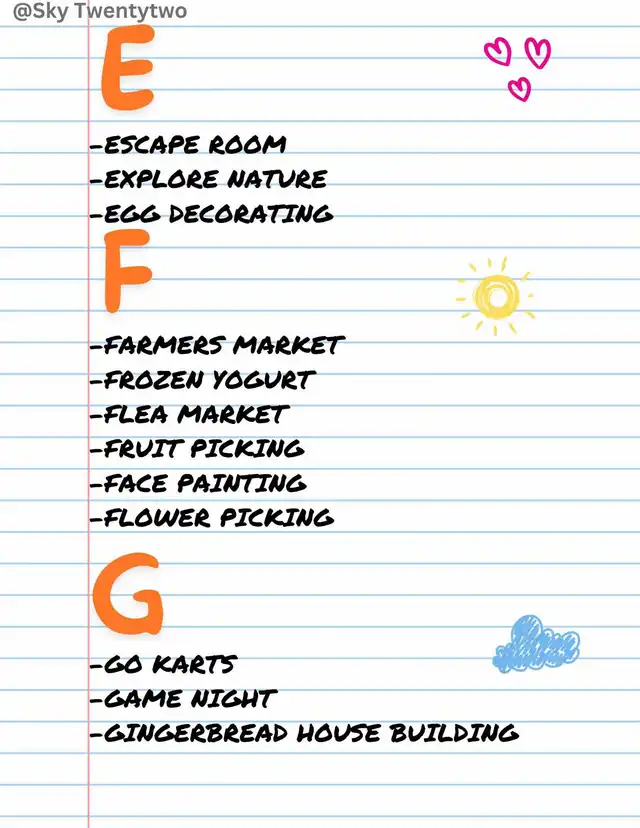 @Sky Twentytwo
E
-ESCAPE ROOM
-EXPLORE NATURE
-EGG DECORATING
F
-FARMERS MARKET
-FROZEN YOGURT
-FLEA MARKET
-FRUIT PICKING
-FACE PAINTING
-FLOWER PICKING
G
-GO KARTS
-GAME NIGHT
-GINGERBREAD HOUSE BUILDING